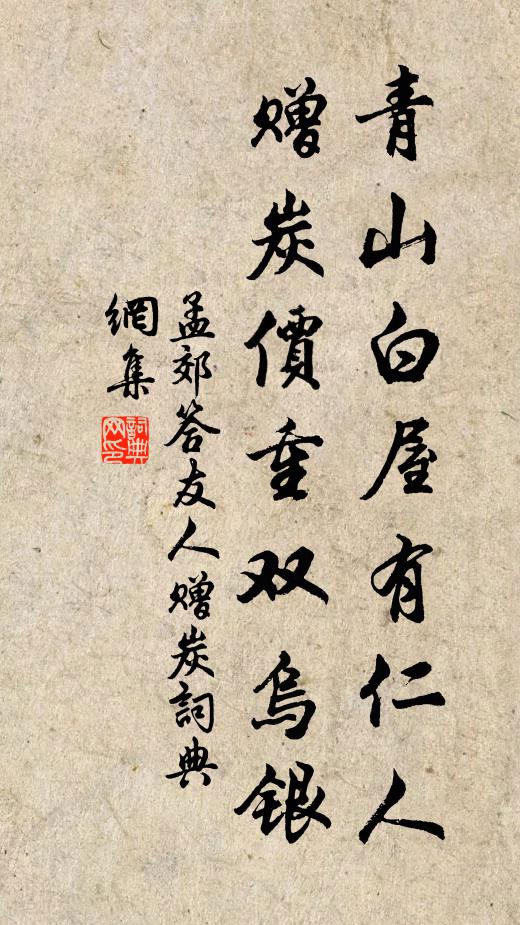 青山白屋有仁人
赠炭價重双烏银
孟郊答友人赠炭詞典
網集
詞典
网印